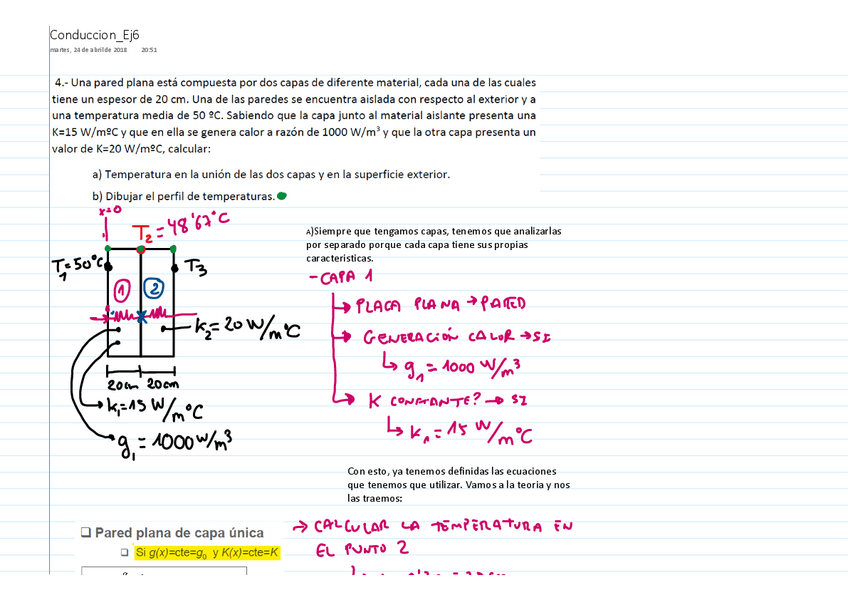 Conduccion_Ej6
martes, 24 de abril de 2018 20:51
4.- Una pared plana está compuesta por dos capas de diferente material, cada una de las cuales
tiene un espesor de 20 cm. Una de las paredes se encuentra aislada con respecto al exterior y a
una temperatura media de 50 ºC. Sabiendo que la capa junto al material aislante presenta una
K=15 W/mºC y que en ella se genera calor a razón de 1000 W/m³ y que la otra capa presenta un
valor de K=20 W/mºC, calcular:
a) Temperatura en la unión de las dos capas y en la superficie exterior.
b) Dibujar el perfil de temperaturas.
x=0
T₂ = 48'67°C
T₁=50°C
T₃
1
2
k₂=20 W/m°C
20cm 20cm
k₁=15 W/m°C
g₁ = 1000 W/m³
A)Siempre que tengamos capas, tenemos que analizarlas
por separado porque cada capa tiene sus propias
caracteristicas.
- CAPA 1
→ PLACA PLANA → PARED
→ GENERACIÓN CALOR → SI
↳ g₁ = 1000 W/m³
→ K CONSTANTE? → SI
↳ K₁ = 15 W/m°C
Con esto, ya tenemos definidas las ecuaciones
que tenemos que utilizar. Vamos a la teoria y nos
las traemos:
❑ Pared plana de capa única
❑ Si g(x)=cte=g₀ y K(x)=cte=K
→ CALCULAR LA TEMPERATURA EN
EL PUNTO 2